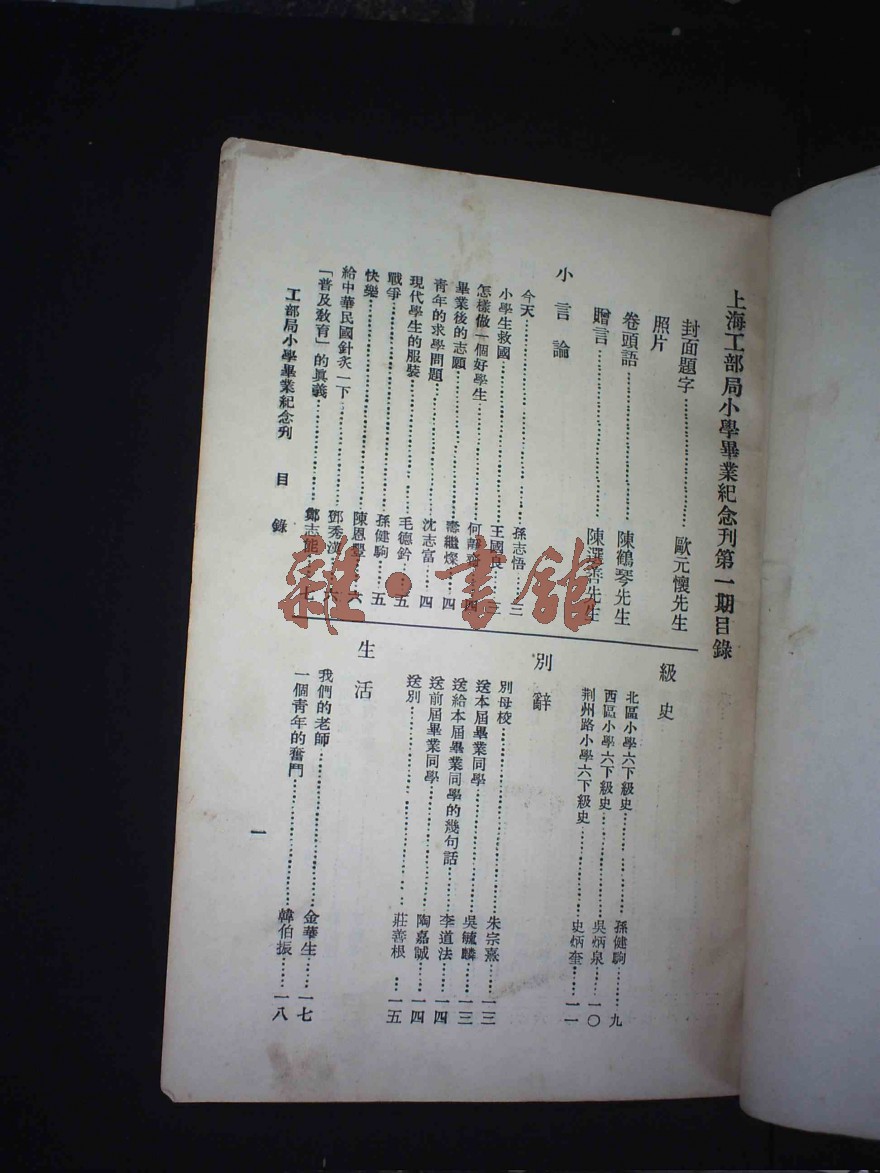 上海工部局小學畢業紀念刊第一期目錄
封面題字……歐元懷先生
照片
卷頭語……陳鶴琴先生
贈言……陳選善先生
小言論
今天……孫志悟……三
小學生救國……王國良……三
怎樣做一個好學生……何……四
畢業後的志願……壽繼燦……四
青年的求學問題……沈志富……四
現代學生的服裝……毛德鈐……五
戰爭……孫健駒……五
快樂……陳恩豐……六
給中華民國針灸一下……鄧秀漢……六
「普及教育」的眞義……鄭志能……七
級史
北區小學六下級史……孫健駒……九
西區小學六下級史……吳炳泉……一〇
荆州路小學六下級史……史炳奎……一一
別辭
別母校……朱宗熹……一三
送本屆畢業同學……吳毓麟……一三
送給本屆畢業同學的幾句話……李道法……一四
送前屆畢業同學……陶嘉誠……一四
送別……莊善根……一五
生活
我們的老師……金華生……一七
一個青年的奮鬥……韓伯振……一八
工部局小學畢業紀念刊 目錄
一
雜·書館